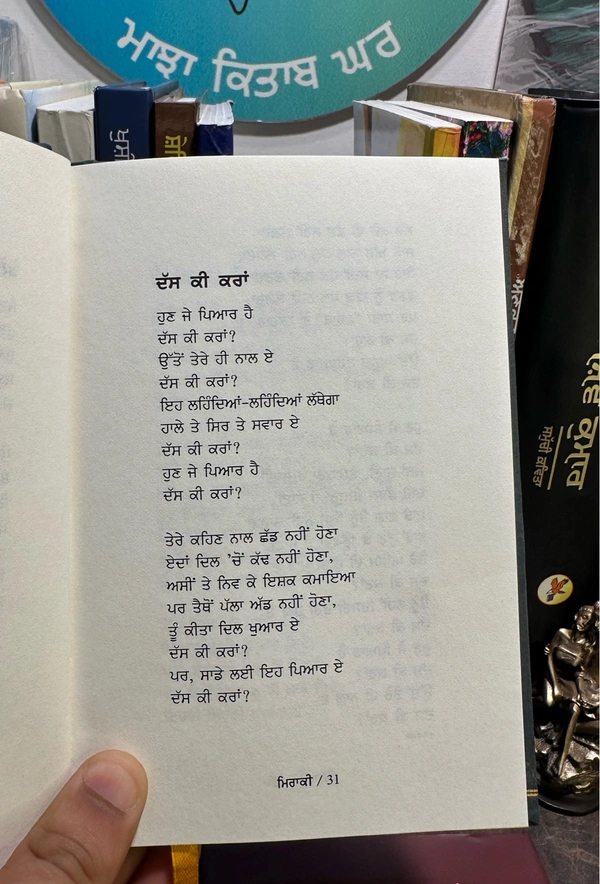 ਮਾਝਾ ਕਿਤਾਬ ਘਰ
ਦੱਸ ਕੀ ਕਰਾਂ
ਹੁਣ ਜੇ ਪਿਆਰ ਹੈ
ਦੱਸ ਕੀ ਕਰਾਂ?
ਉੱਤੋਂ ਤੇਰੇ ਹੀ ਨਾਲ ਏ
ਦੱਸ ਕੀ ਕਰਾਂ?
ਇਹ ਲਹਿੰਦਿਆਂ-ਲਹਿੰਦਿਆਂ ਲੱਥੇਗਾ
ਹਾਲੇ ਤੇ ਸਿਰ ਤੇ ਸਵਾਰ ਏ
ਦੱਸ ਕੀ ਕਰਾਂ?
ਹੁਣ ਜੇ ਪਿਆਰ ਹੈ
ਦੱਸ ਕੀ ਕਰਾਂ?
ਤੇਰੇ ਕਹਿਣ ਨਾਲ ਛੱਡ ਨਹੀਂ ਹੋਣਾ
ਏਦਾਂ ਦਿਲ 'ਚੋਂ ਕੱਢ ਨਹੀਂ ਹੋਣਾ,
ਅਸੀਂ ਤੇ ਨਿਵ ਕੇ ਇਸ਼ਕ ਕਮਾਇਆ
ਪਰ ਤੈਥੋਂ ਪੱਲਾ ਅੱਡ ਨਹੀਂ ਹੋਣਾ,
ਤੂੰ ਕੀਤਾ ਦਿਲ ਖੁਆਰ ਏ
ਦੱਸ ਕੀ ਕਰਾਂ?
ਪਰ, ਸਾਡੇ ਲਈ ਇਹ ਪਿਆਰ ਏ
ਦੱਸ ਕੀ ਕਰਾਂ?
ਮਿਰਾਕੀ / 31
ਕੁਮਾਰ
ਸਮੁੱਚੀ ਕਵਿਤਾ